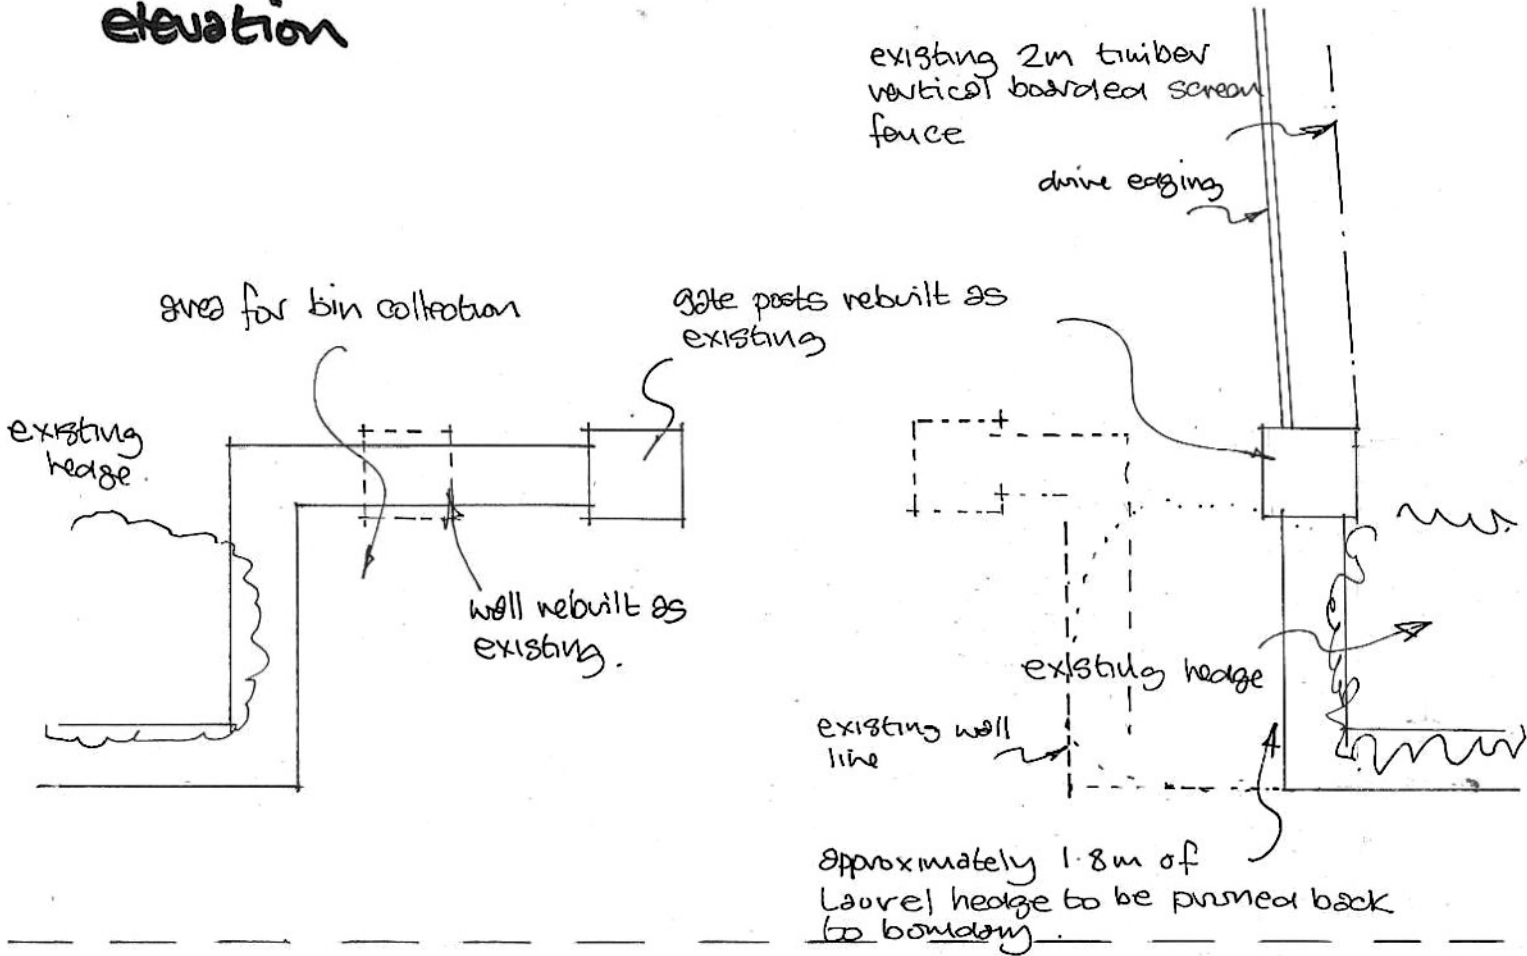 elevation
existing 2m timber
vertical boarded screen
fence
drive edging
area for bin collection
gate posts rebuilt as
existing
existing
hedge.
wall rebuilt as
existing.
existing hedge
existing wall
line
approximately 1.8m of
Laurel hedge to be pruned back
to boundary.